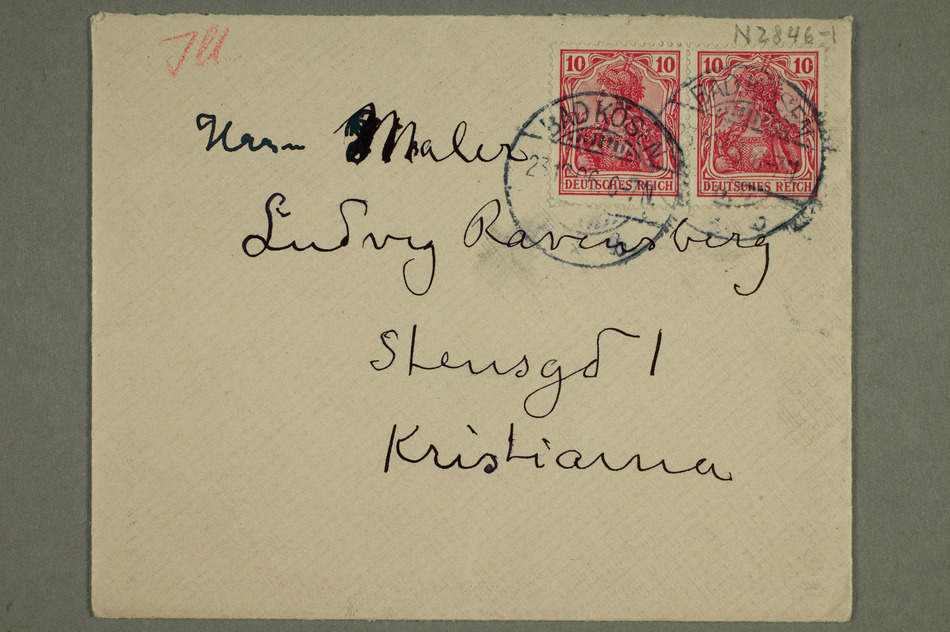 N2846-1
10 10 10 10
BAD KÖSEN
BAD KÖSEN
DEUTSCHES REICH DEUTSCHES REICH
b b
Herrn Maler
Ludvig Ravensberg
Stensgd 1
Kristiania